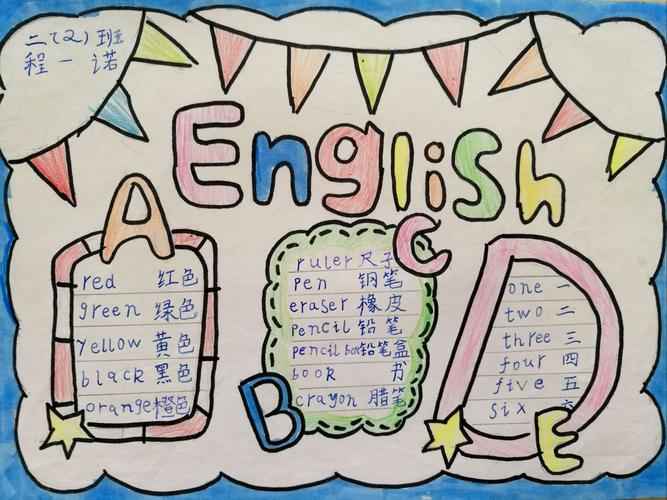 二(2)班
程一诺
English
A
red 红色
green 绿色
yellow 黄色
black 黑色
orange 橙色
C
ruler 尺子
pen 钢笔
eraser 橡皮
pencil 铅笔
pencil box 铅笔盒
book 书
crayon 腊笔
B
D
one 一
two 二
three 三
four 四
five 五
six 六
E